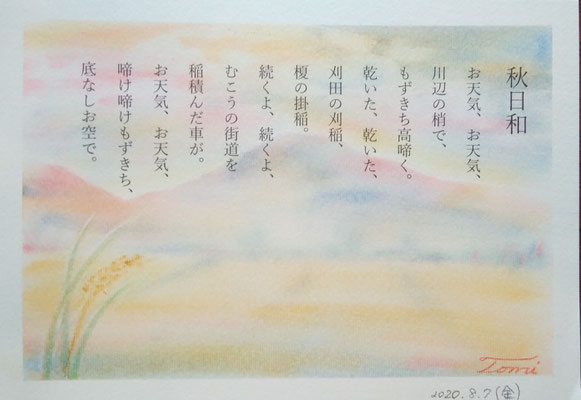 秋日和
お天気、お天気、
川辺の梢で、
もずきち高啼く。
乾いた、乾いた、
刈田の刈稲、
榎の掛稲。
続くよ、続くよ、
むこうの街道を
稲積んだ車が。
お天気、お天気、
啼け啼けもずきち、
底なしお空で。
Tomi
2020.8.7(金)